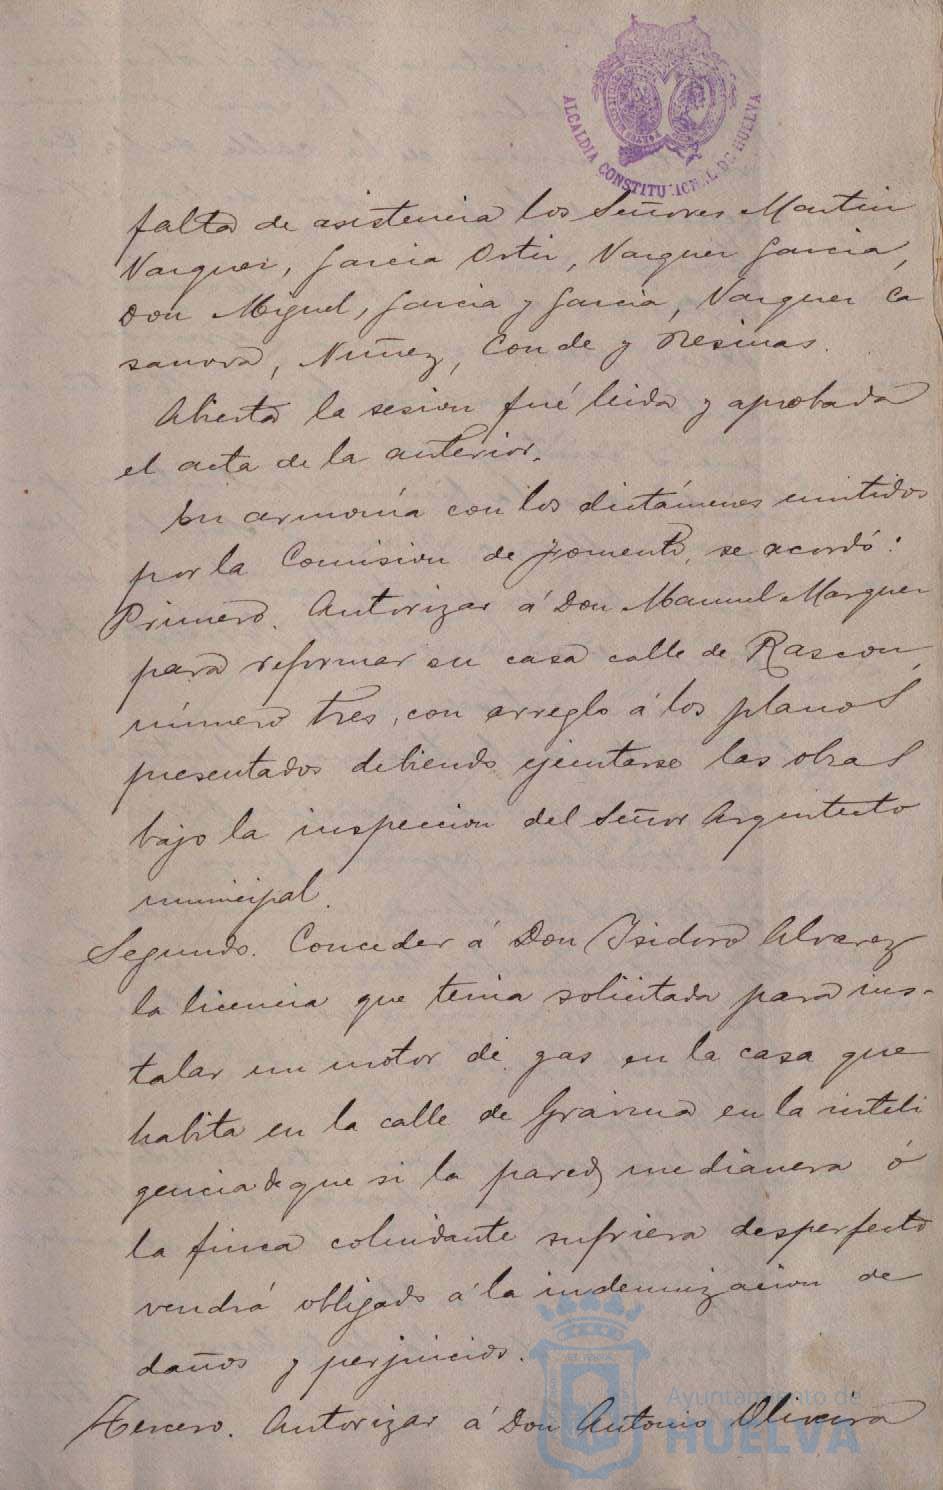 ALCALDIA CONSTITUCIONAL DE HUELVA
falta de asistencia los Señores Martin
Vazquez, Garcia Ortiz, Vazquez Garcia,
Don Miguel, Garcia y Garcia, Vazquez Ca
sanova, Nuñez, Conde y Resinas.
Abierta la sesion fué leida y aprobada
el acta de la anterior.
En armonía con los dictámenes emitidos
por la Comision de Fomento, se acordó:
Primero. Autorizar á Don Manuel Marquez
para reformar su casa calle de Rascon,
número tres, con arreglo á los planos
presentados debiendo ejecutarse las obras
bajo la inspeccion del Señor Arquitecto
municipal.
Segundo. Conceder á Don Isidoro Alvarez
la licencia que tenia solicitada para ins-
talar un motor de gas en la casa que
habita en la calle de Gravina en la inteli
gencia de que si la pared medianera ó
la finca colindante sufriera desperfecto
vendrá obligado á la indemnizacion de
daños y perjuicios.
Tercero. Autorizar á Don Antonio Oliveira
Ayuntamiento de
HUELVA